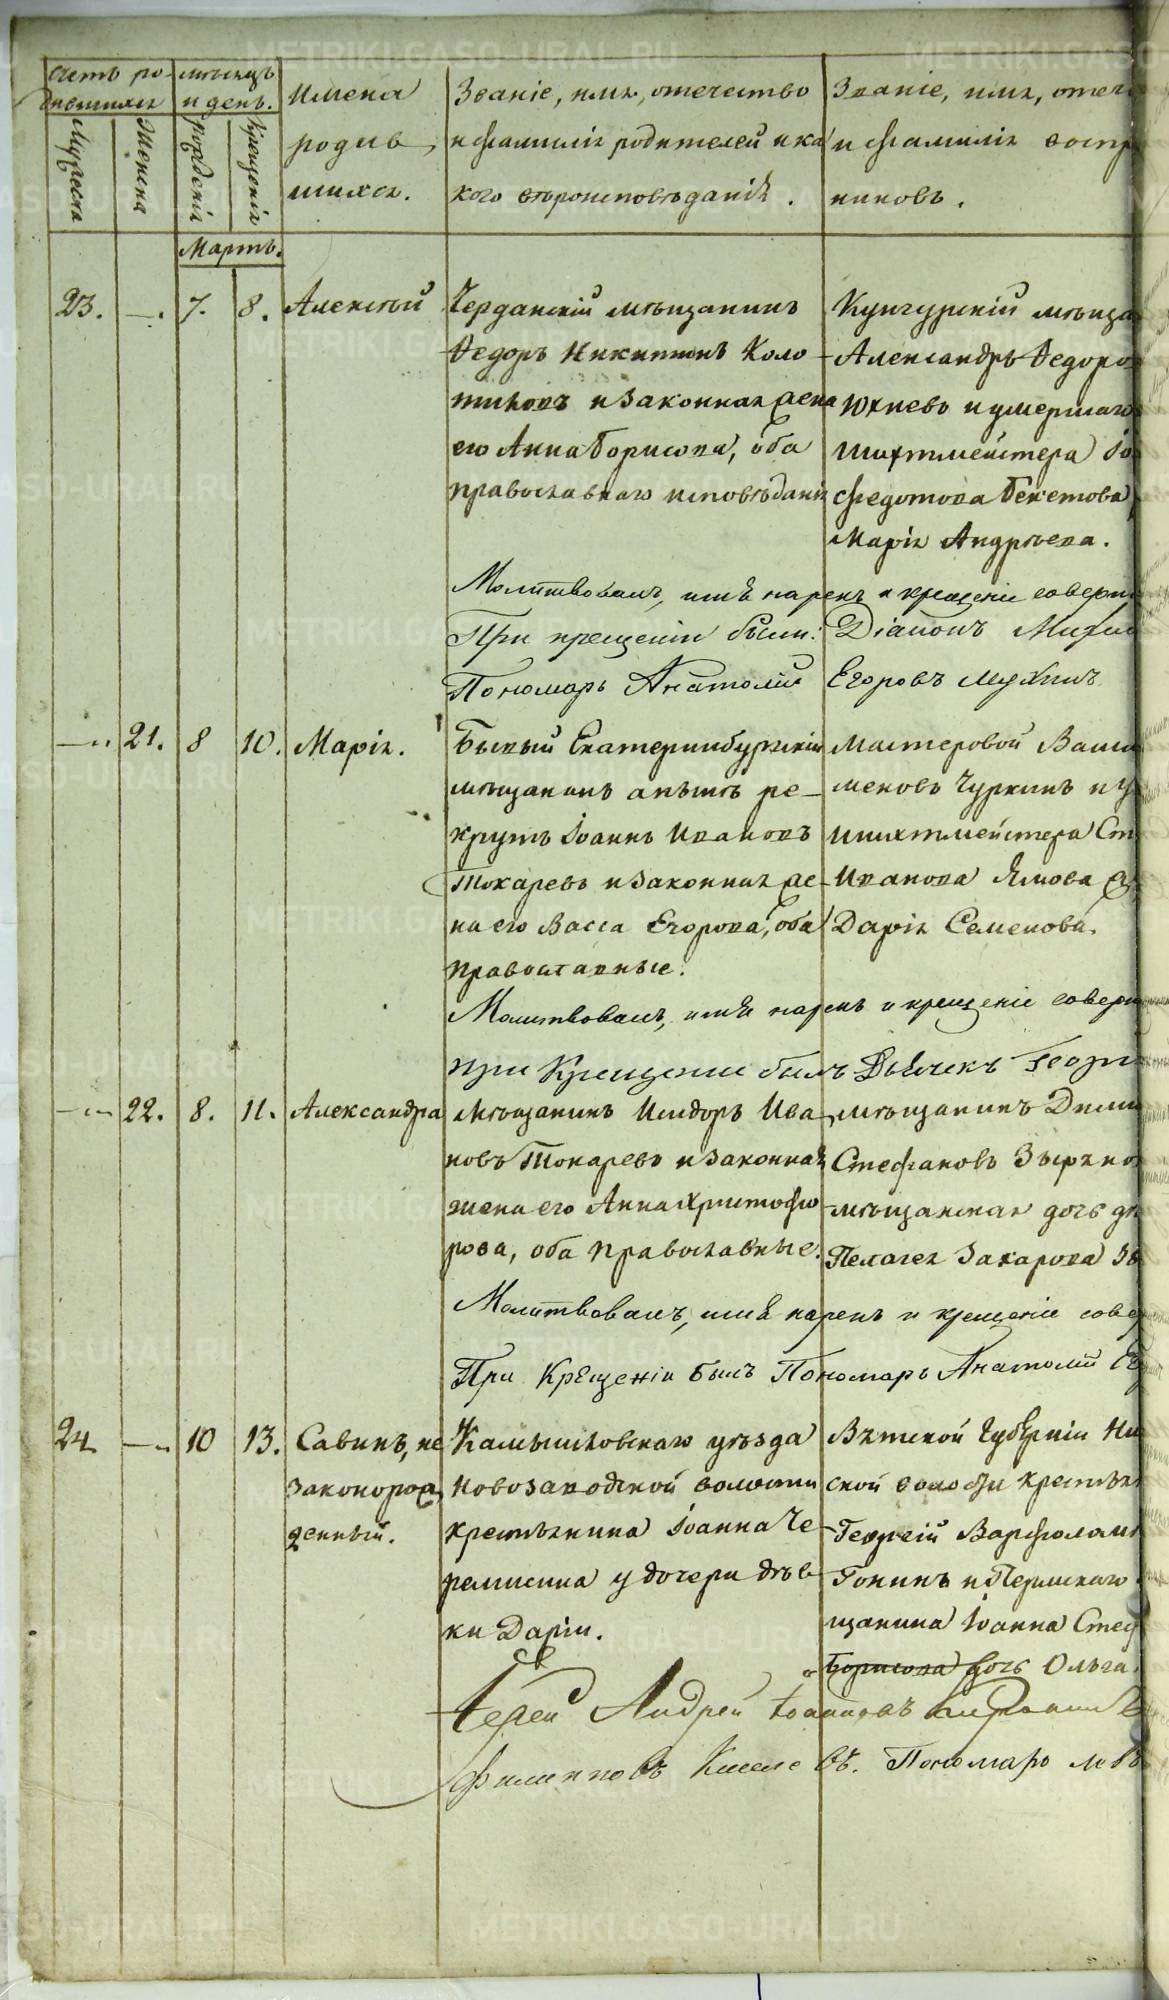 METRIKI.GASO-URAL.RU
счетъ ро-
дившихся
мѣсяцъ
и день.
Имена
родив
шихся.
Званіе, имя, отечество
и фамилія родителей и ка
кого вѣроисповѣданія.
Званіе, имя, отече
и фамилія воспр
никовъ.
Мужеска
Женска
рожденія
крещенія
Мартъ.
23. — 7. 8. Алексѣй
Чердынскій мѣщанинъ
Ѳедоръ Никитинъ Коло
тиловъ и законная жена
его Анна Борисова, оба
православнаго исповѣданія
Кунгурскій мѣща
Александръ Ѳедоро
Юхневъ и умершаго
шихтмейстера
Федотова Бекетова
Марія Андрѣева.
Молитвовалъ, имя нарекъ и крещеніе соверш
При крещеніи были: Діаконъ Михаи
Пономарь Анатолій Егоровъ Мухинъ
— 21. 8 10. Марія.
Бывый Екатеринбургскій
мѣщанинъ а нынѣ ре-
крутъ Іоаннъ Ивановъ
Токаревъ и законная же-
на его Васса Егорова, оба
православные.
Мастеровой Васи
меновъ Чуркинъ и у
шихтмейстера Ст
Иванова Ямова
Дарія Семенова.
Молитвовалъ, имя нарекъ и крещеніе соверш
При Крещеніи былъ Дьячекъ Георг
— 22. 8. 11. Александра
Мѣщанинъ Исидоръ Ива
новъ Токаревъ и законная
жена его Анна Христофо
рова, оба православные.
мѣщанинъ Дими
Стефановъ Зыряно
мѣщанская дочь дѣ
Пелагея Захарова
Молитвовалъ, имя нарекъ и крещеніе совер
При Крещеніи былъ Пономарь Анатолій Ег
24 — 10 13. Савинъ, не
законорож
денный.
Камышловскаго уѣзда
Новозаводской волости
крестьянина Іоанна Че
ремисина у дочери дѣв
ки Даріи.
Вятской Губерніи Ни
ской волости крестьян
Георгій Варфолом
Гонинъ и Пермскаго
щанина Іоанна Стеф
Борисова дочь Ольга.
Іерей Андрей Іоанновъ
Филипповъ Киселевъ. Пономарь Левъ